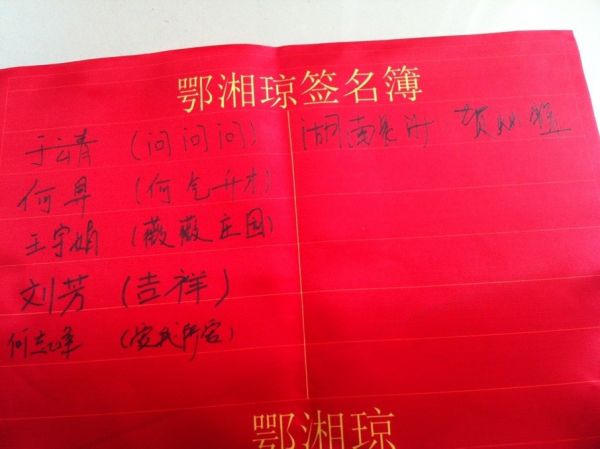 鄂湘琼签名簿
于云青 (问问问) 湖南长沙 贺
何早 (何乞升才)
王宇娟 (薇薇庄园)
刘芳 (吉祥)
何志军
鄂湘琼